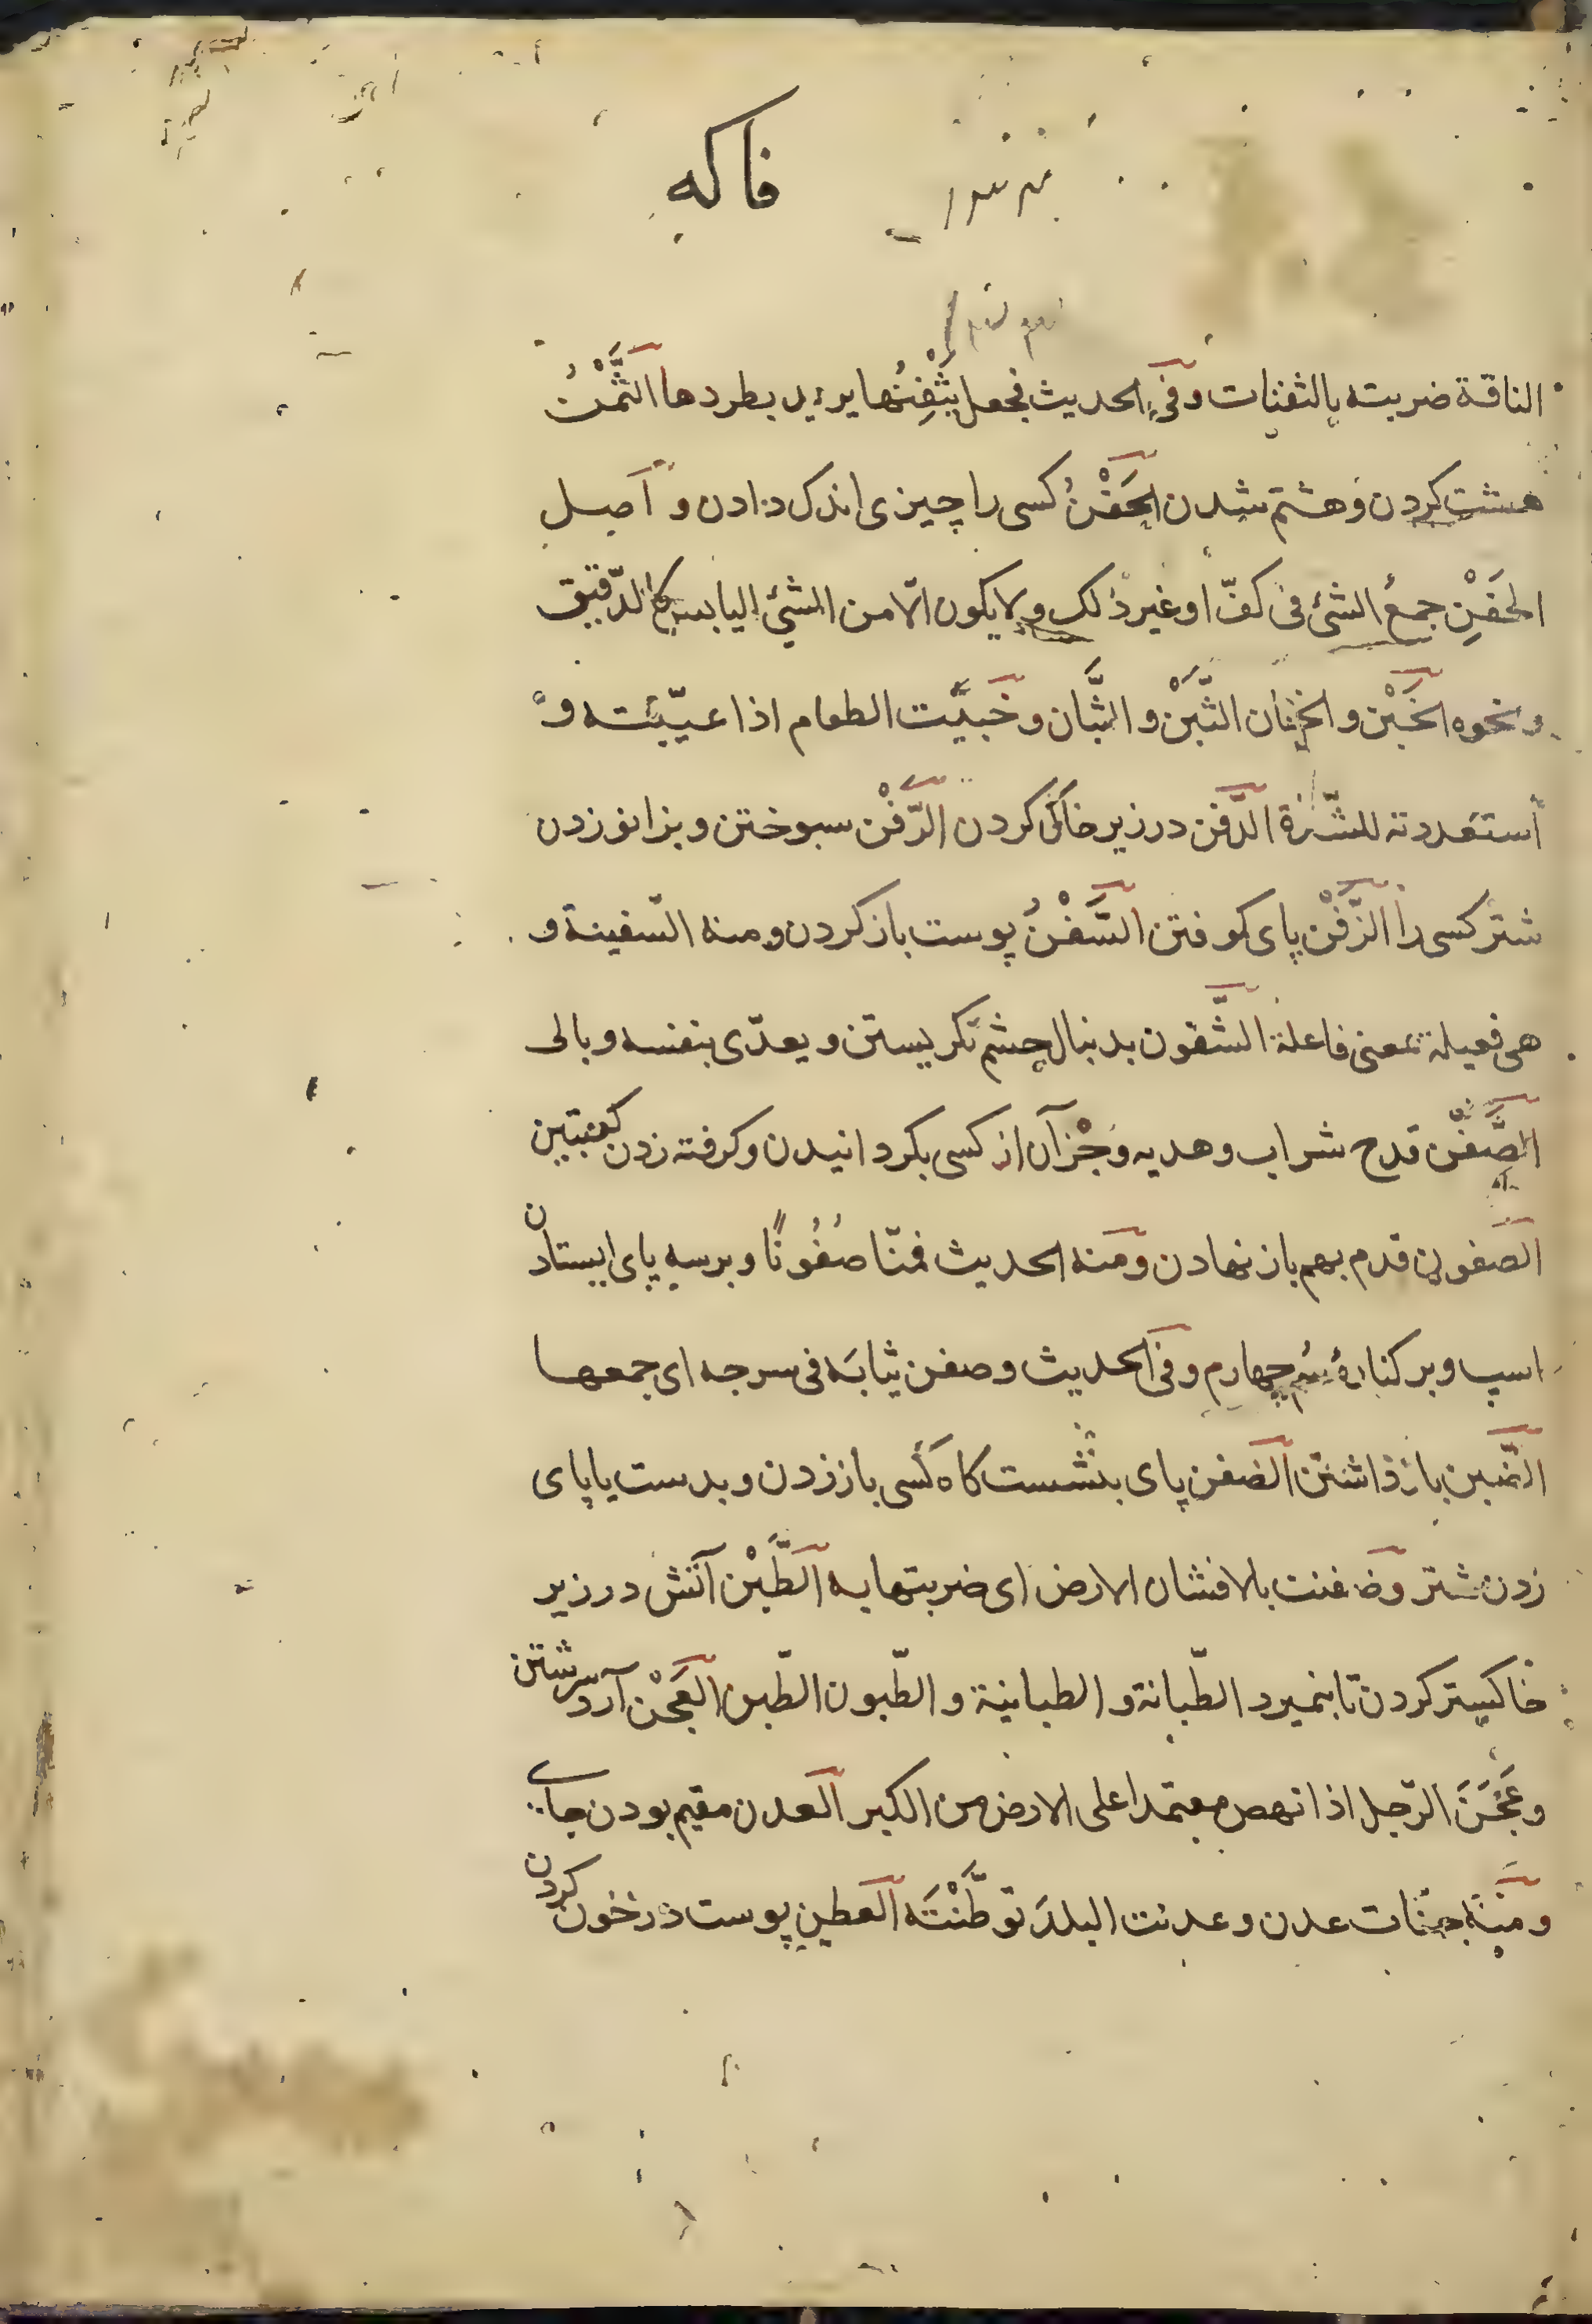 فاكه
الناقة ضربته بالثفنات وفى الحديث فجعل يَثْفِنُها يريد يطردها الثَّمْنُ
هشت كردن و هشتم شدن الحَفْنُ كسى را چيزى اندك دادن و اصل
الحَفْنِ جمعُ الشئ فى كفّ او غير ذلك ولا يكون الّا من الشئ اليابس كالدّقيق
ونحوه الخَبْن و الخبان الثَّبْن و الثَّبان و خبيَّت الطعام اذا عيّبته و
استعددته للشّدّة الدَّفن در زير خاك كردن الزَّفْن سبوختن و بزانو زدن
شتر كسى را الزَّفْن پاى كوفتن السَّفْنُ پوست باز كردن ومنه السّفينة و
هى فعيلة بمعنى فاعلة الشَّفون بدنبال چشم نكريستن و يعدّى بنفسه و بالى
الصَّفْن قدح شراب و هديه و جْز آن از كسى بكردانيدن و كرفته زدن كعبتين
الصفون قدم بهم باز نهادن ومنه الحديث قمنا صُفُونًا و بر سه پاى ايستادن
اسپ و بر كنارهٔ سُم چهارم وفى الحديث وصفن ثيابَه فى سرجه اى جمعها
الضّبن باز ذاشتن الضفن پاى بنشست كاه كسى باز زدن و بدست يا پاى
زدن شتر وضفنت بالانسان الارض اى ضربتها به الطَّبْن آتش در زير
خاكيستر كردن تا بنميرد الطّبانة و الطبانية و الطّبون الطّبن العَجْن آرد سرشتن
و عَجَنَ الرّجل اذا نهض معتمدا على الارض من الكبر العدن مقيم بودن بجاى
و منه جنّات عدن و عدنت البلدَ توطَّنْتَه العطين پوست در خون كردن